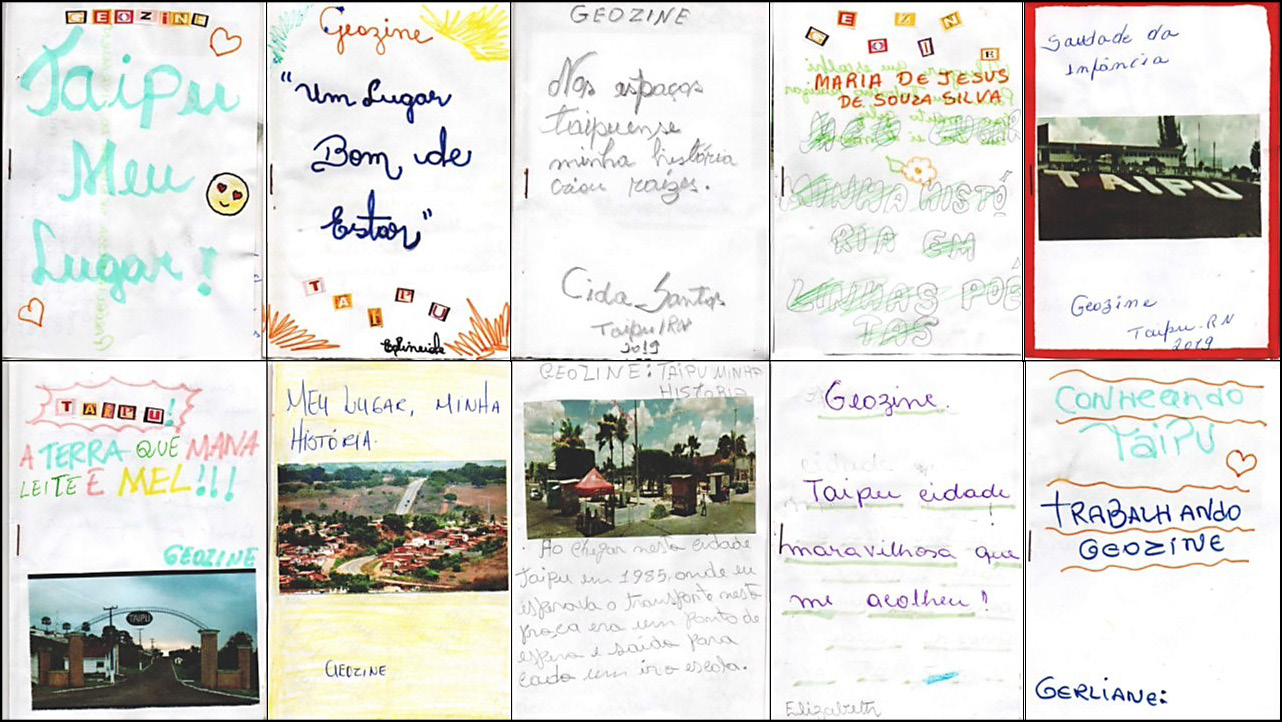 GEOZINE
Taipu
Meu
Lugar!
Geozine
"Um Lugar
Bom de
Estar"
TAIPU
GEOZINE
Nos espaços
taipuense
minha história
criou raízes.
Cida Santos
Taipu/RN
2019
GEOZINE
MARIA DE JESUS
DE SOUZA SILVA
MINHA HISTÓ
RIA EM
LINHAS POÉ
TAS
Saudade da
Infância
TAIPU
Geozine
Taipu-RN
2019
TAIPU!
A TERRA QUE MANA
LEITE E MEL!!!
GEOZINE
TAIPU
MEU LUGAR, MINHA
HISTÓRIA.
GEOZINE
GEOZINE: TAIPU MINHA
HISTORIA
Ao chegar nesta cidade
Taipu em 1985, onde eu
esperava o transporte nesta
praça era um ponto de
espera e saída para
cada um ir a escola.
Geozine.
Taipu cidade
maravilhosa que
me acolheu!
Elizabeth
CONHECANDO
TAIPU
TRABALHANDO
GEOZINE
GERLIANE: